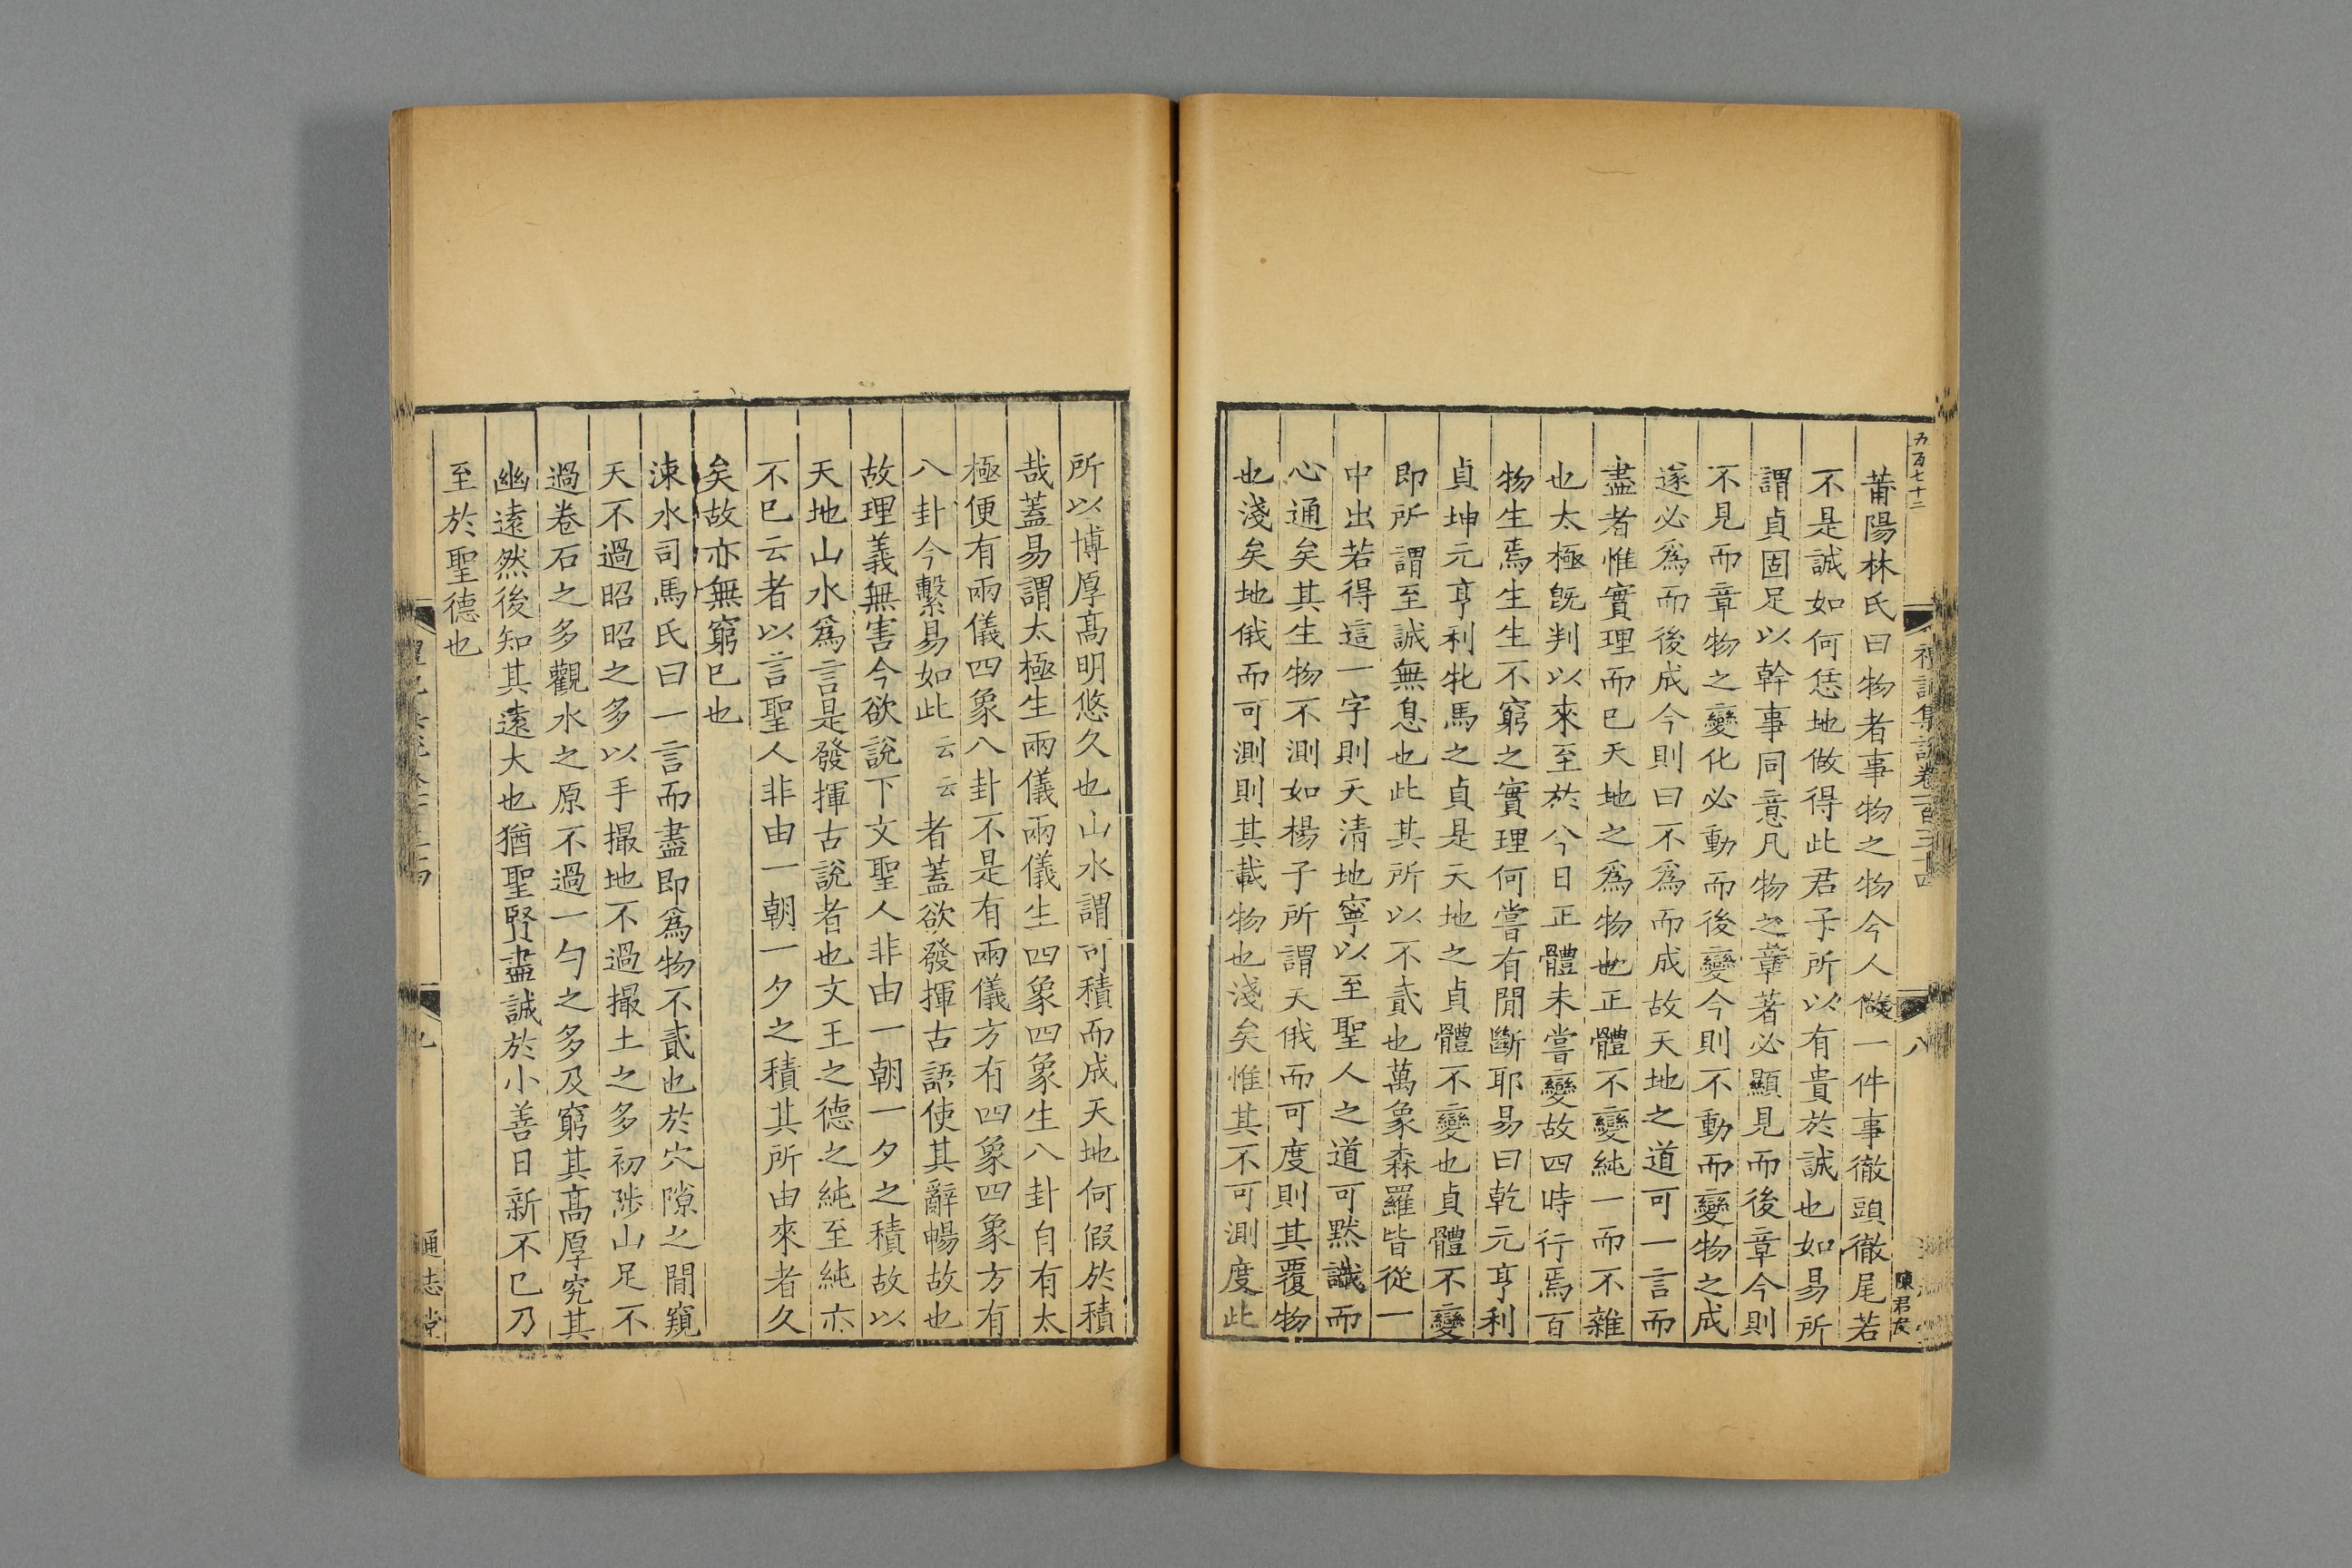 五百七十二
禮記集說卷一百三十四
八
陳君友
莆陽林氏曰物者事物之物今人做一件事徹頭徹尾若
不是誠如何恁地做得此君子所以有貴於誠也如易所
謂貞固足以幹事同意凡物之章著必顯見而後章今則
不見而章物之變化必動而後變今則不動而變物之成
遂必爲而後成今則曰不爲而成故天地之道可一言而
盡者惟實理而已天地之爲物也正體不變純一而不雜
也太極旣判以來至於今日正體未嘗變故四時行焉百
物生焉生生不窮之實理何嘗有閒斷耶易曰乾元亨利
貞坤元亨利牝馬之貞是天地之貞體不變也貞體不變
即所謂至誠無息也此其所以不貳也萬象森羅皆從一
中出若得這一字則天清地寧以至聖人之道可黙識而
心通矣其生物不測如楊子所謂天俄而可度則其覆物
也淺矣地俄而可測則其載物也淺矣惟其不可測度此
所以博厚高明悠久也山水謂可積而成天地何假於積
哉蓋易謂太極生兩儀兩儀生四象四象生八卦自有太
極便有兩儀四象八卦不是有兩儀方有四象四象方有
八卦今繫易如此云云者蓋欲發揮古語使其辭暢故也
故理義無害今欲說下文聖人非由一朝一夕之積故以
天地山水爲言是發揮古說者也文王之德之純至純亦
不已云者以言聖人非由一朝一夕之積其所由來者久
矣故亦無窮已也
涑水司馬氏曰一言而盡即爲物不貳也於穴隙之閒窺
天不過昭昭之多以手撮地不過撮土之多初陟山足不
過卷石之多觀水之原不過一勺之多及窮其高厚究其
幽遠然後知其遠大也猶聖賢盡誠於小善日新不已乃
至於聖德也
九
通志堂